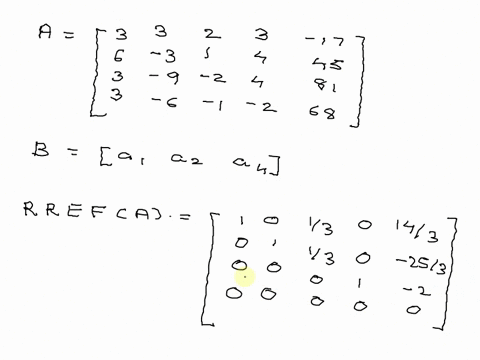 A = [ 3 3 2 3 -17
6 -3 1 4 45
3 -9 -2 4 81
3 -6 -1 -2 68 ]
B = [a1 a2 a4]
RREF(A). = [ 1 0 1/3 0 14/3
0 1 1/3 0 -25/3
0 0 0 1 -2
0 0 0 0 0 ]